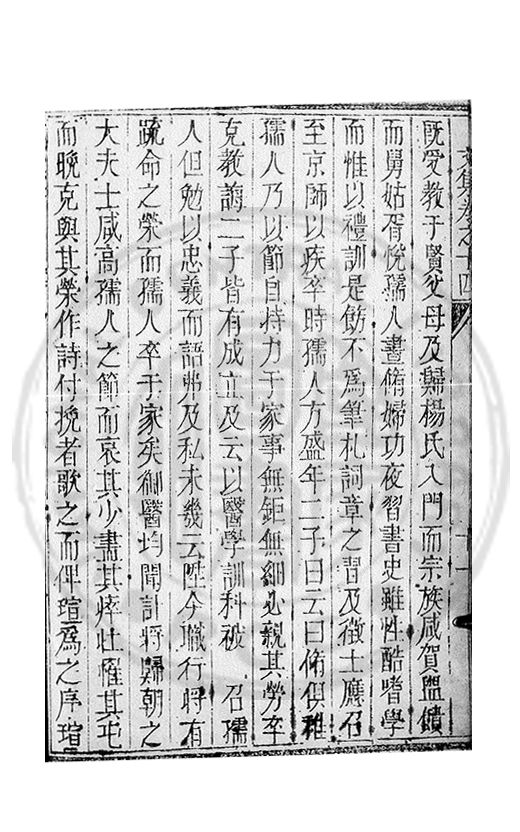 文集卷之十四
既受教于賢父母及歸楊氏入門而宗族咸賀盥饋
而舅姑胥悅孺人晝脩婦功夜習書史雖性酷嗜學
而惟以禮訓是飭不爲筆札詞章之習及徵士應召
至京師以疾卒時孺人方盛年二子曰云曰脩俱稚
孺人乃以節自持力于家事無鉅無細必親其勞卒
克教誨二子皆有成立及云以醫學訓科被 召孺
人但勉以忠義而語弗及私未幾云陞今職行將有
疏命之榮而孺人卒于家矣御醫均聞訃將歸朝之
大夫士咸高孺人之節而哀其少晝其瘁壯罹其屯
而晩克與其榮作詩付挽者歌之而俾瑄爲之序瑄